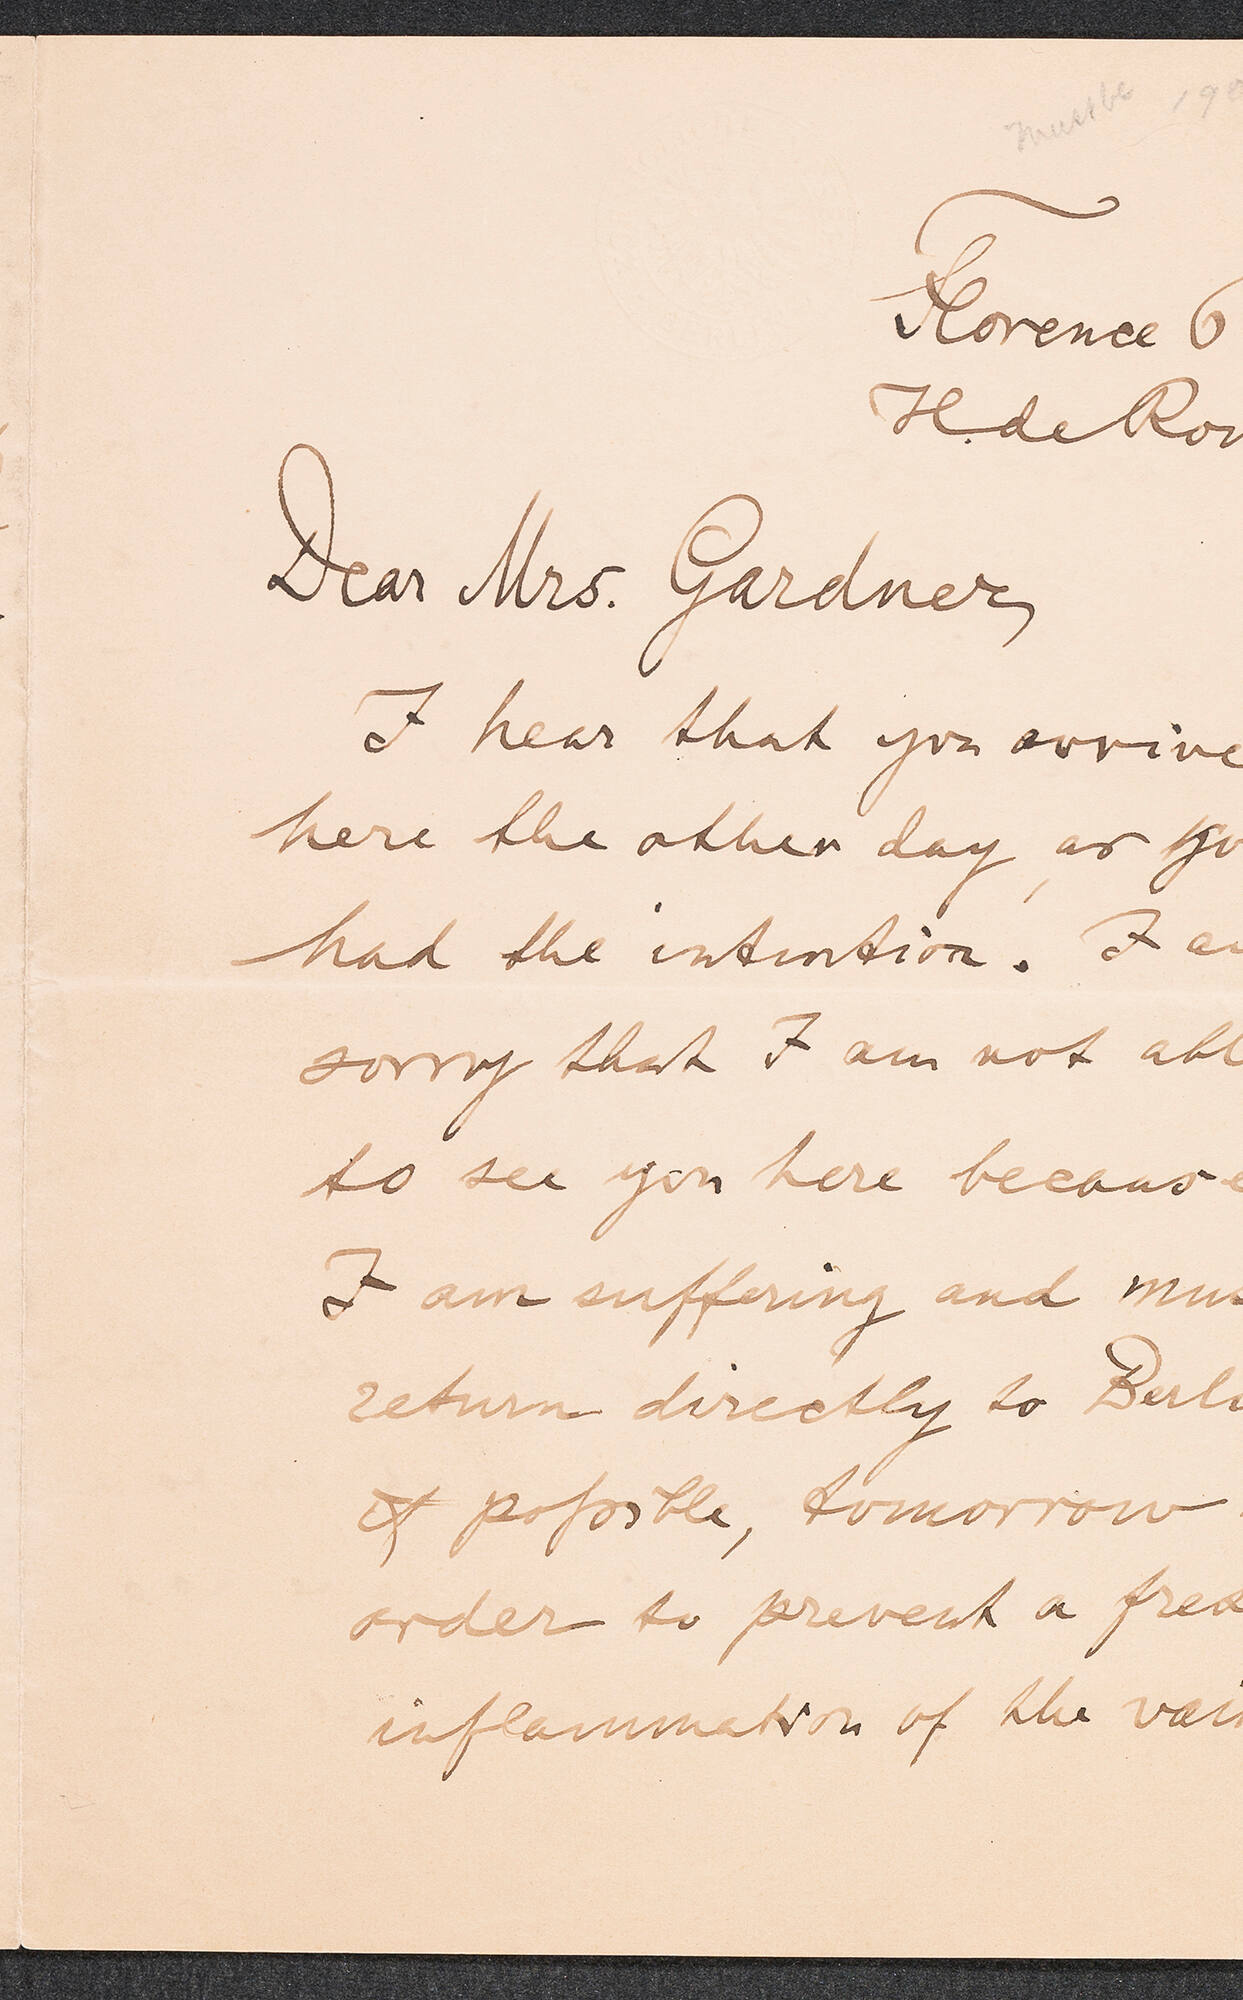 must be 190
Florence 6
H. de Ro
Dear Mrs. Gardner,
I hear that you arrive
here the other day, as yo
had the intention. I a
sorry that I am not abl
to see you here because
I am suffering and mus
return directly to Berli
if possible, tomorrow
order to prevent a
inflammation of the vei